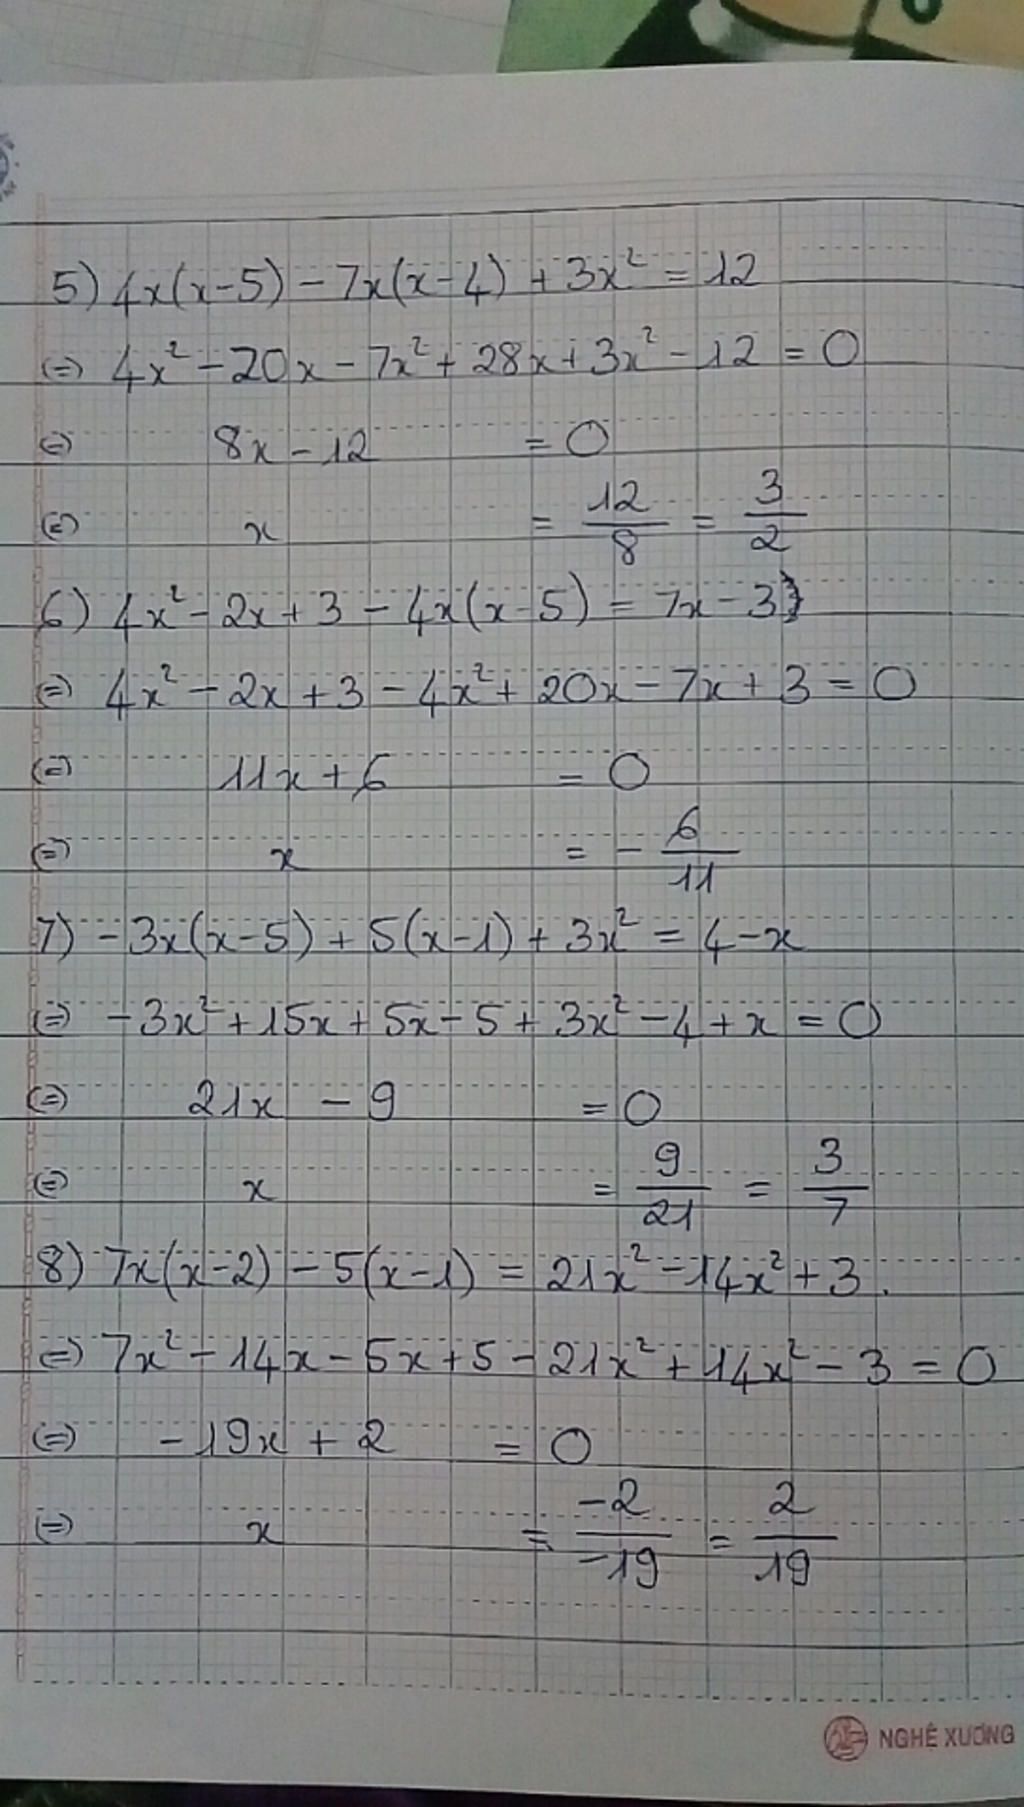 5) 4x(x-5) - 7x(x-4) + 3x² = 12
(=) 4x² - 20x - 7x² + 28x + 3x² - 12 = 0
(=) 8x - 12 = 0
(=) x = 12/8 = 3/2
6) 4x² - 2x + 3 - 4x(x-5) = 7x - 3
(=) 4x² - 2x + 3 - 4x² + 20x - 7x + 3 = 0
(=) 11x + 6 = 0
(=) x = - 6/11
7) -3x(x-5) + 5(x-1) + 3x² = 4-x
(=) -3x² + 15x + 5x - 5 + 3x² - 4 + x = 0
(=) 21x - 9 = 0
(=) x = 9/21 = 3/7
8) 7x(x-2) - 5(x-1) = 21x² - 14x² + 3.
(=) 7x² - 14x - 5x + 5 - 21x² + 14x² - 3 = 0
(=) -19x + 2 = 0
(=) x = -2/-19 = 2/19
NGHỆ XƯƠNG